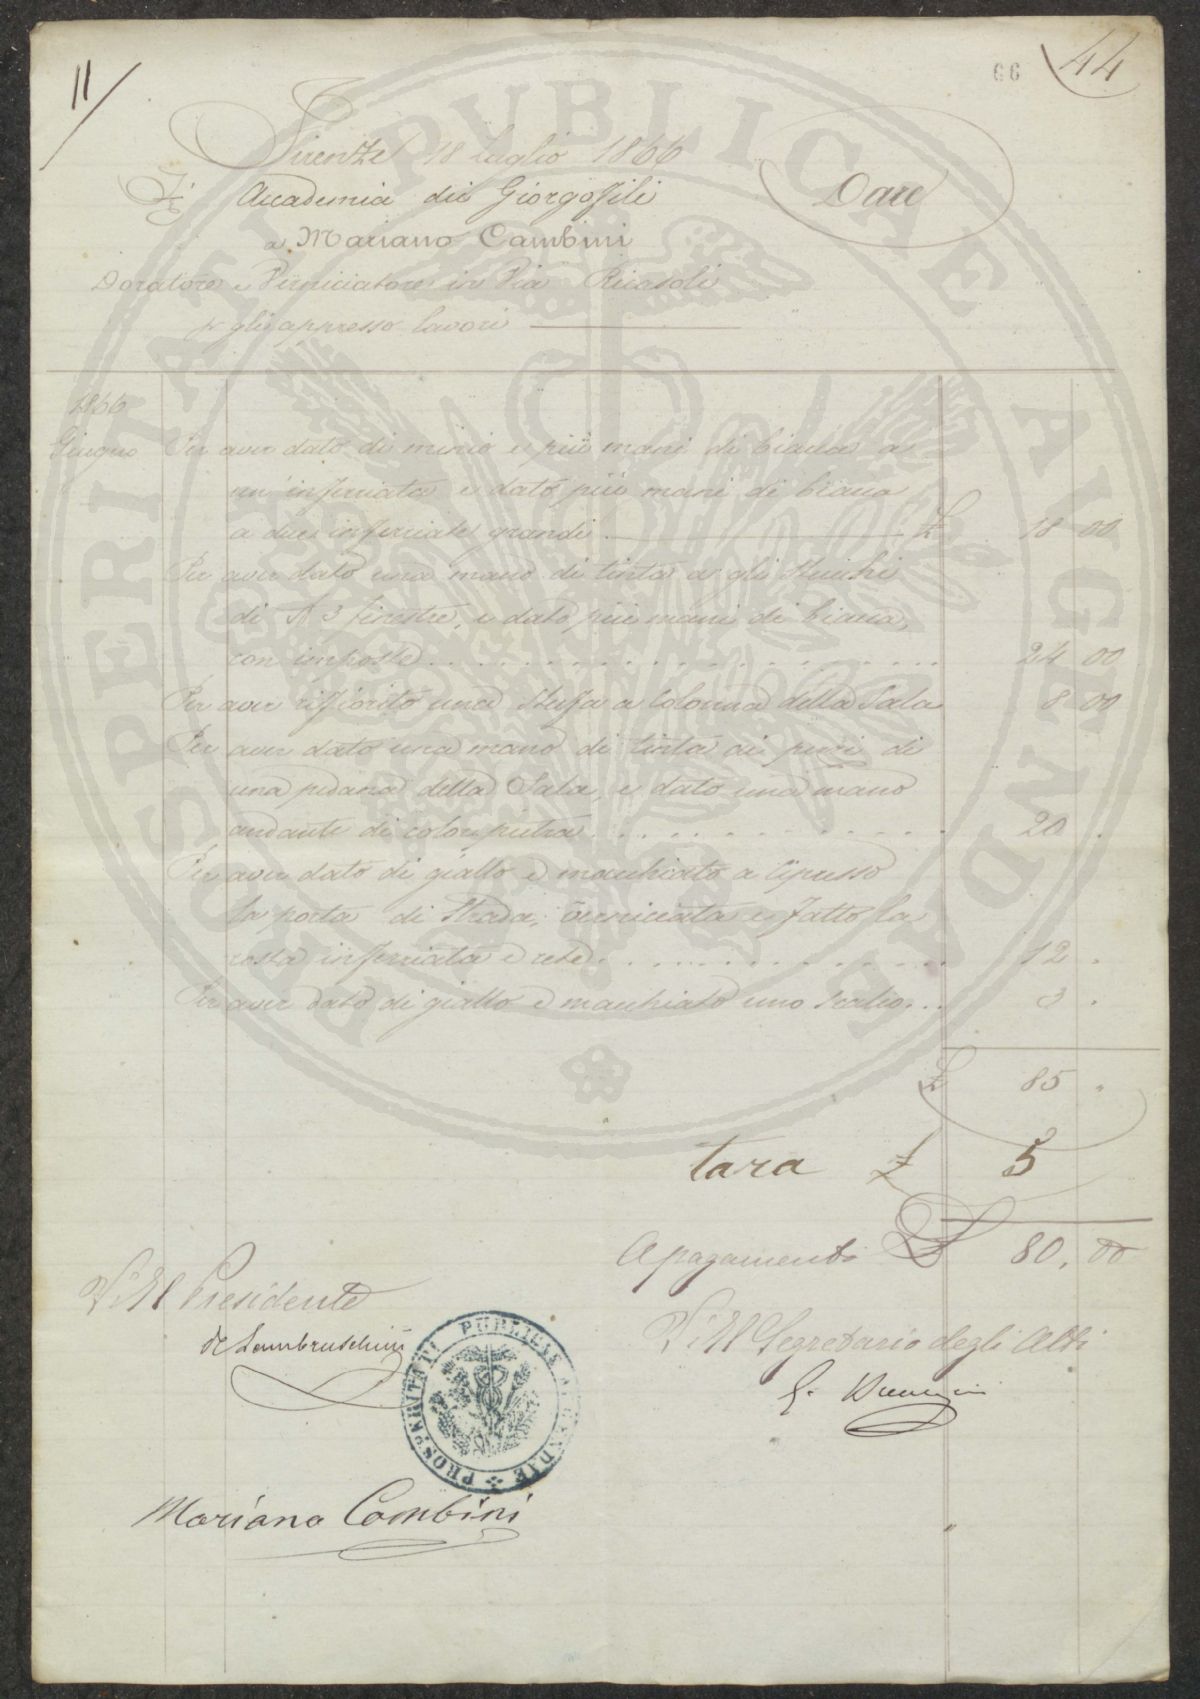 11
66
44
Firenze 18 luglio 1866
Accademia dei Giorgofili
Dare
a Mariano Cambini
Doratore e Verniciatore in Via Ricasoli
p gli appresso lavori
1866
Giugno Per aver dato di minio e più mani di biacca a
un' inferriata e dato più mani di biacca
a due inferriate grandi £ 18 00
Per aver dato una mano di tinta a gli stucchi
di N 3 finestre, e dato più mani di biacca,
con imposte 24 00
Per aver rifiorito una Stufa a Colonna della Sala 8 00
Per aver dato una mano di tinta ai piani di
una pedana della Sala, e dato una mano
andante di color pietra 20
Per aver dato di giallo e macchiato a Cipresso
la porta di Strada, verniciata e fatto la
rosta inferriata e rete 12
Per aver dato di giallo e macchiato uno Scaleo 3
£ 85
tara £ 5
A pagamento £ 80,00
V° Il Presidente
R Lambruschini
V° Il Segretario degli Atti
PROSPERITATI PUBLICAE AUGENDAE
Mariano Cambini
PROSPERITATI PVBLICAE AVGENDAE